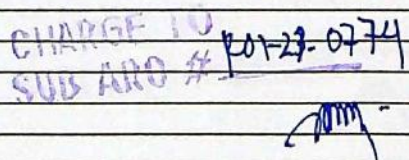 CHARGE TO
SUB ARO # R01-23-0774